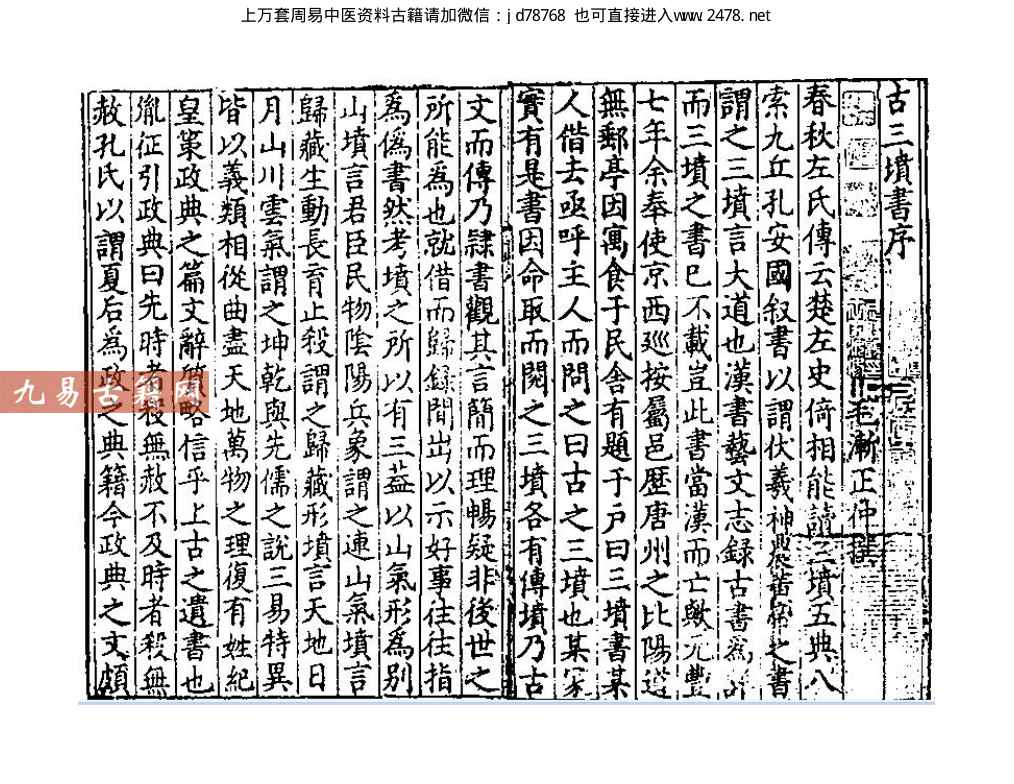 上万套周易中医资料古籍请加微信：jd78768 也可直接进入www.2478.net
古三墳書序
毛漸正仲撰
春秋左氏傳云楚左史倚相能讀三墳五典八
索九丘孔安國叙書以謂伏羲神農黃帝之書
謂之三墳言大道也漢書藝文志録古書爲詳
而三墳之書已不載豈此書當漢而亡歟元豐
七年余奉使京西廵按屬邑歷唐州之比陽道
無郵亭因寓食于民舎有題于户曰三墳書某
人借去亟呼主人而問之曰古之三墳也某家
實有是書因命取而閱之三墳各有傳墳乃古
文而傳乃隸書觀其言簡而理暢疑非後世之
所能爲也就借而歸録間出以示好事徃徃指
爲僞書然考墳之所以有三葢以山氣形爲别
山墳言君臣民物陰陽兵象謂之連山氣墳言
歸藏生動長育止殺謂之歸藏形墳言天地日
月山川雲氣謂之坤乾與先儒之說三易特異
皆以義類相從曲盡天地萬物之理復有姓紀
皇策政典之篇文辭簡略信乎上古之遺書也
胤征引政典曰先時者殺無赦不及時者殺無
赦孔氏以謂夏后爲政之典籍今政典之文頗
九易古籍网